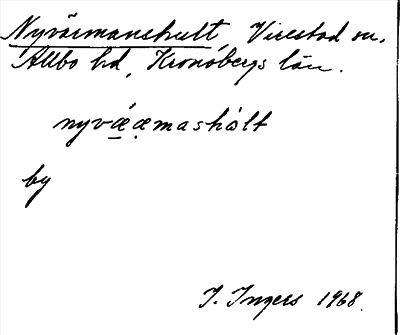 Nyvärmanshult, Virestad sn,
Allbo hd, Kronobergs län.
nyvǽæmashålt
by
I. Ingers 1968.